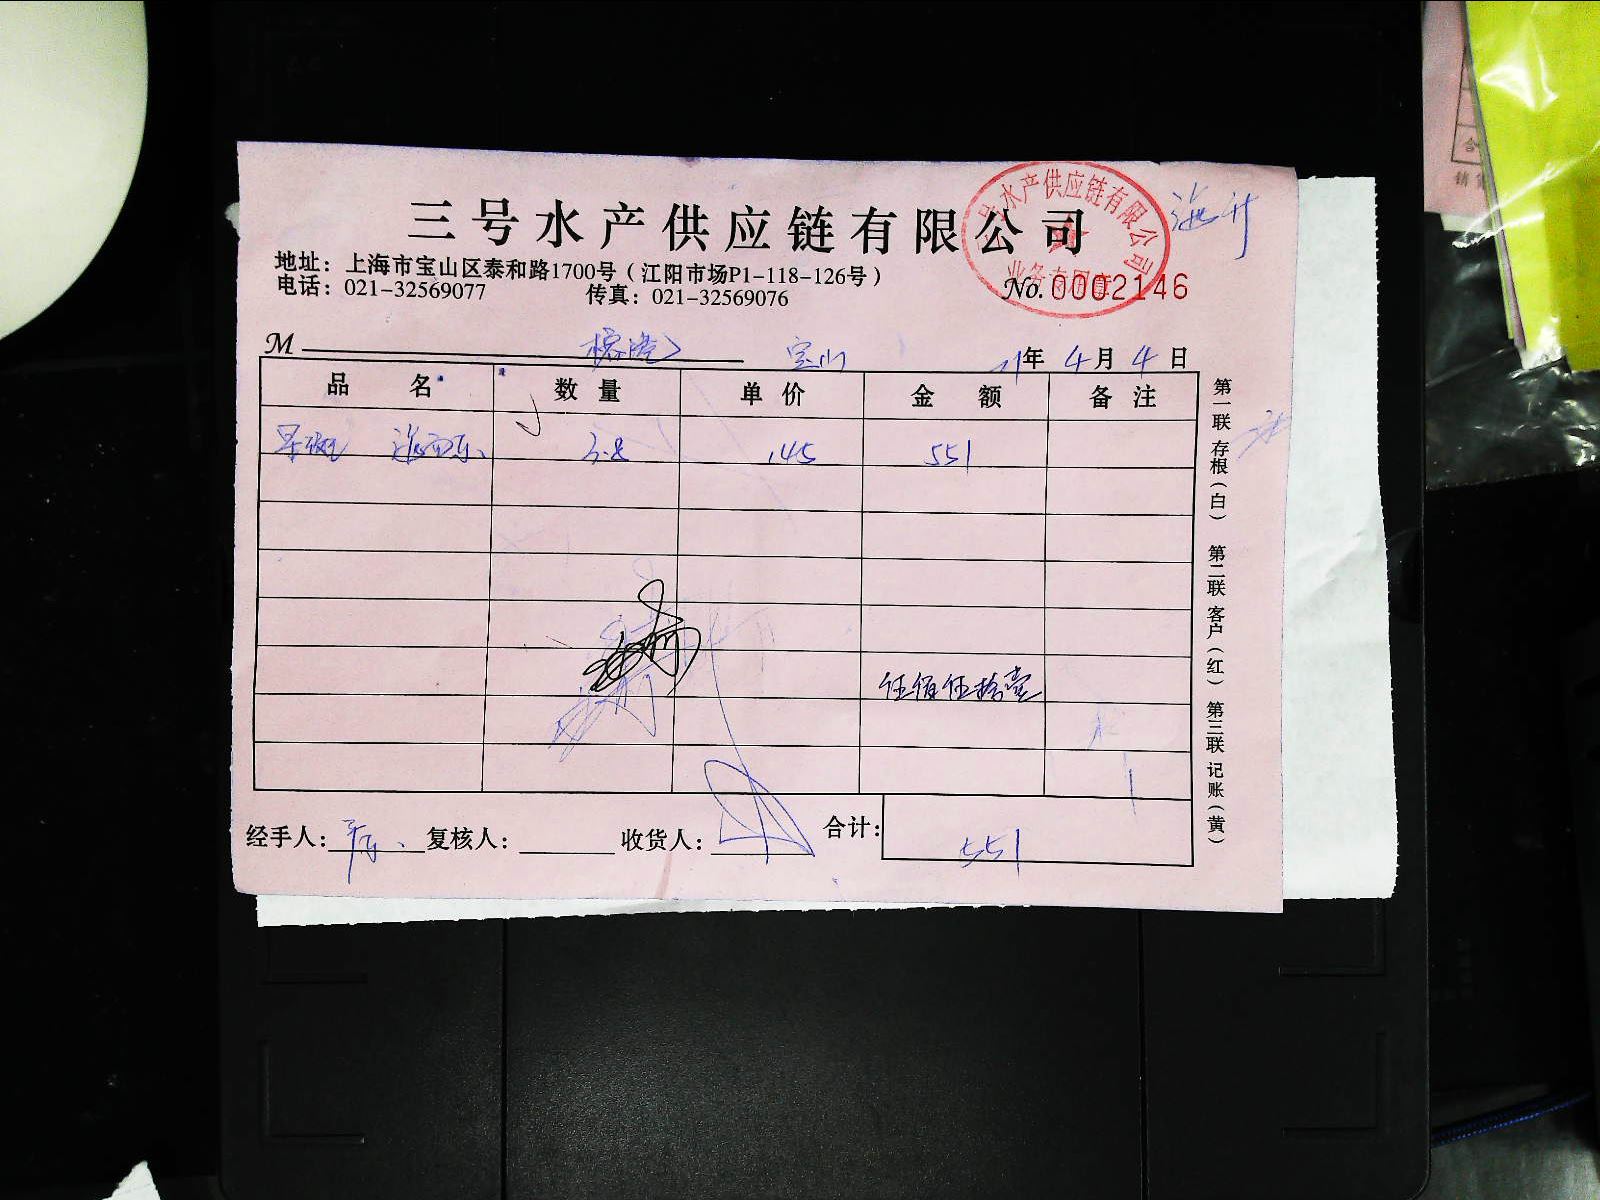 三号水产供应链有限公司
地址：上海市宝山区泰和路1700号（江阳市场P1-118-126号）
电话：021-32569077 传真：021-32569076
号水产供应链有限公司
业务专用章
No. 0002146
M 宝山 21年4月4日
品名 数量 单价 金额 备注
3.8 145 551
伍佰伍拾壹
经手人： 复核人： 收货人： 合计： 551
第一联 存根（白） 第二联 客户（红） 第三联 记账（黄）